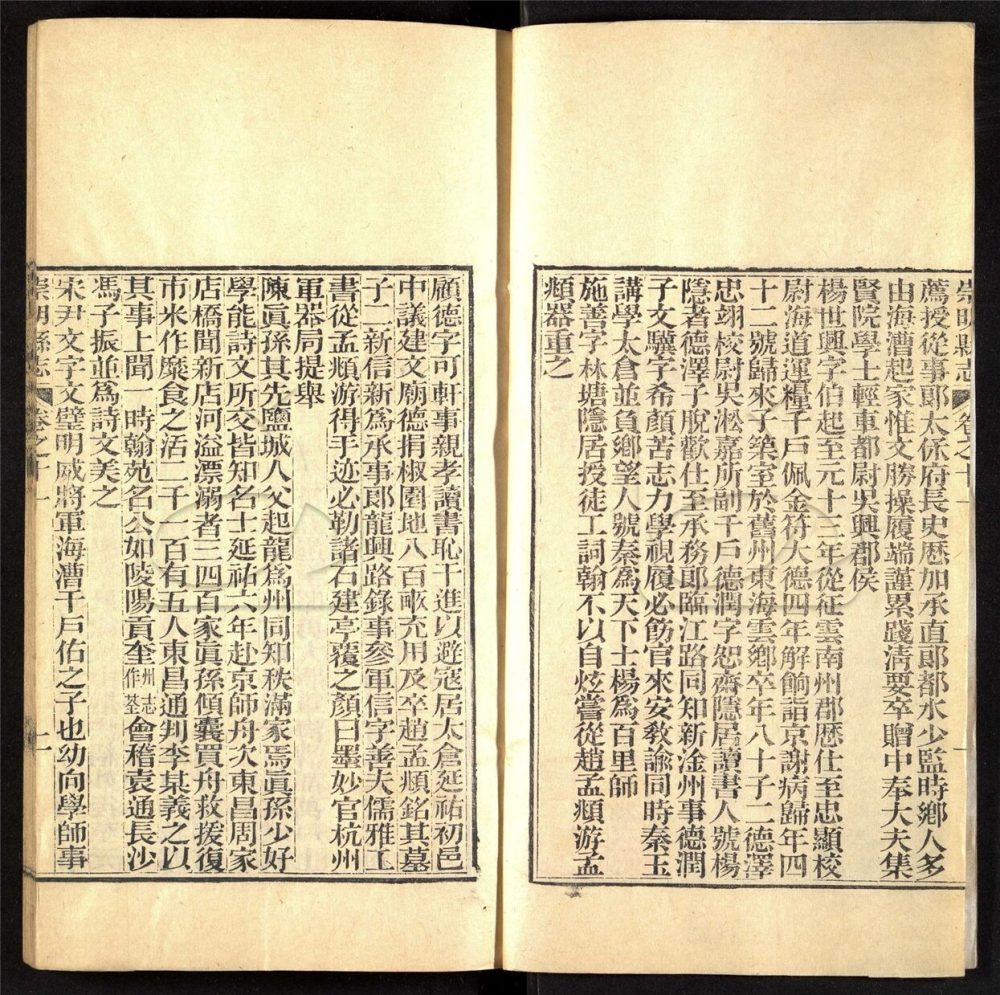 崇明縣志 卷之十一
薦授從事郞太係府長史歷加承直郞都水少監時鄉人多
由海漕起家惟文勝操履端謹累踐淸要卒贈中奉大夫集
賢院學士輕車都尉吳興郡侯
楊世興字伯起至元十三年從征雲南州郡歷仕至忠顯校
尉海道運糧千戸佩金符大德四年解餉詣京謝病歸年四
十二號歸來子築室於舊州東海雲鄉卒年八十子二德澤
忠翊校尉吳淞嘉所副千戸德潤字恕齋隱居讀書人號楊
隱者德澤子脫歡仕至承務郞臨江路同知新淦州事德潤
子文驥字希顏苦志力學視履必飭官來安敎諭同時秦玉
講學太倉並負鄉望人號秦爲天下士楊爲百里師
施善字林塘隱居授徒工詞翰不以自炫嘗從趙孟頫游孟
頫器重之
顧德字可軒事親孝讀書恥干進以避寇居太倉延祐初邑
中議建文廟德捐椒園地八百畝充用及卒趙孟頫銘其墓
子二新信新爲承事郞龍興路錄事參軍信字善夫儒雅工
書從孟頫游得手迹必勒諸石建亭覆之顏曰墨妙官杭州
軍器局提舉
陳眞孫其先鹽城人父起龍爲州同知秩滿家焉眞孫少好
學能詩文所交皆知名士延祐六年赴京師舟次東昌周家
店橋聞新店河溢漂溺者三四百家眞孫傾囊買舟救援復
市米作糜食之活二千一百有五人東昌通判李某義之以
其事上聞一時翰苑名公如陵陽貢奎州志作荃會稽袁通長沙
馮子振並爲詩文美之
宋尹文字文璧明威將軍海漕千戸佑之子也幼向學師事
崇明縣志 卷之十一 十一